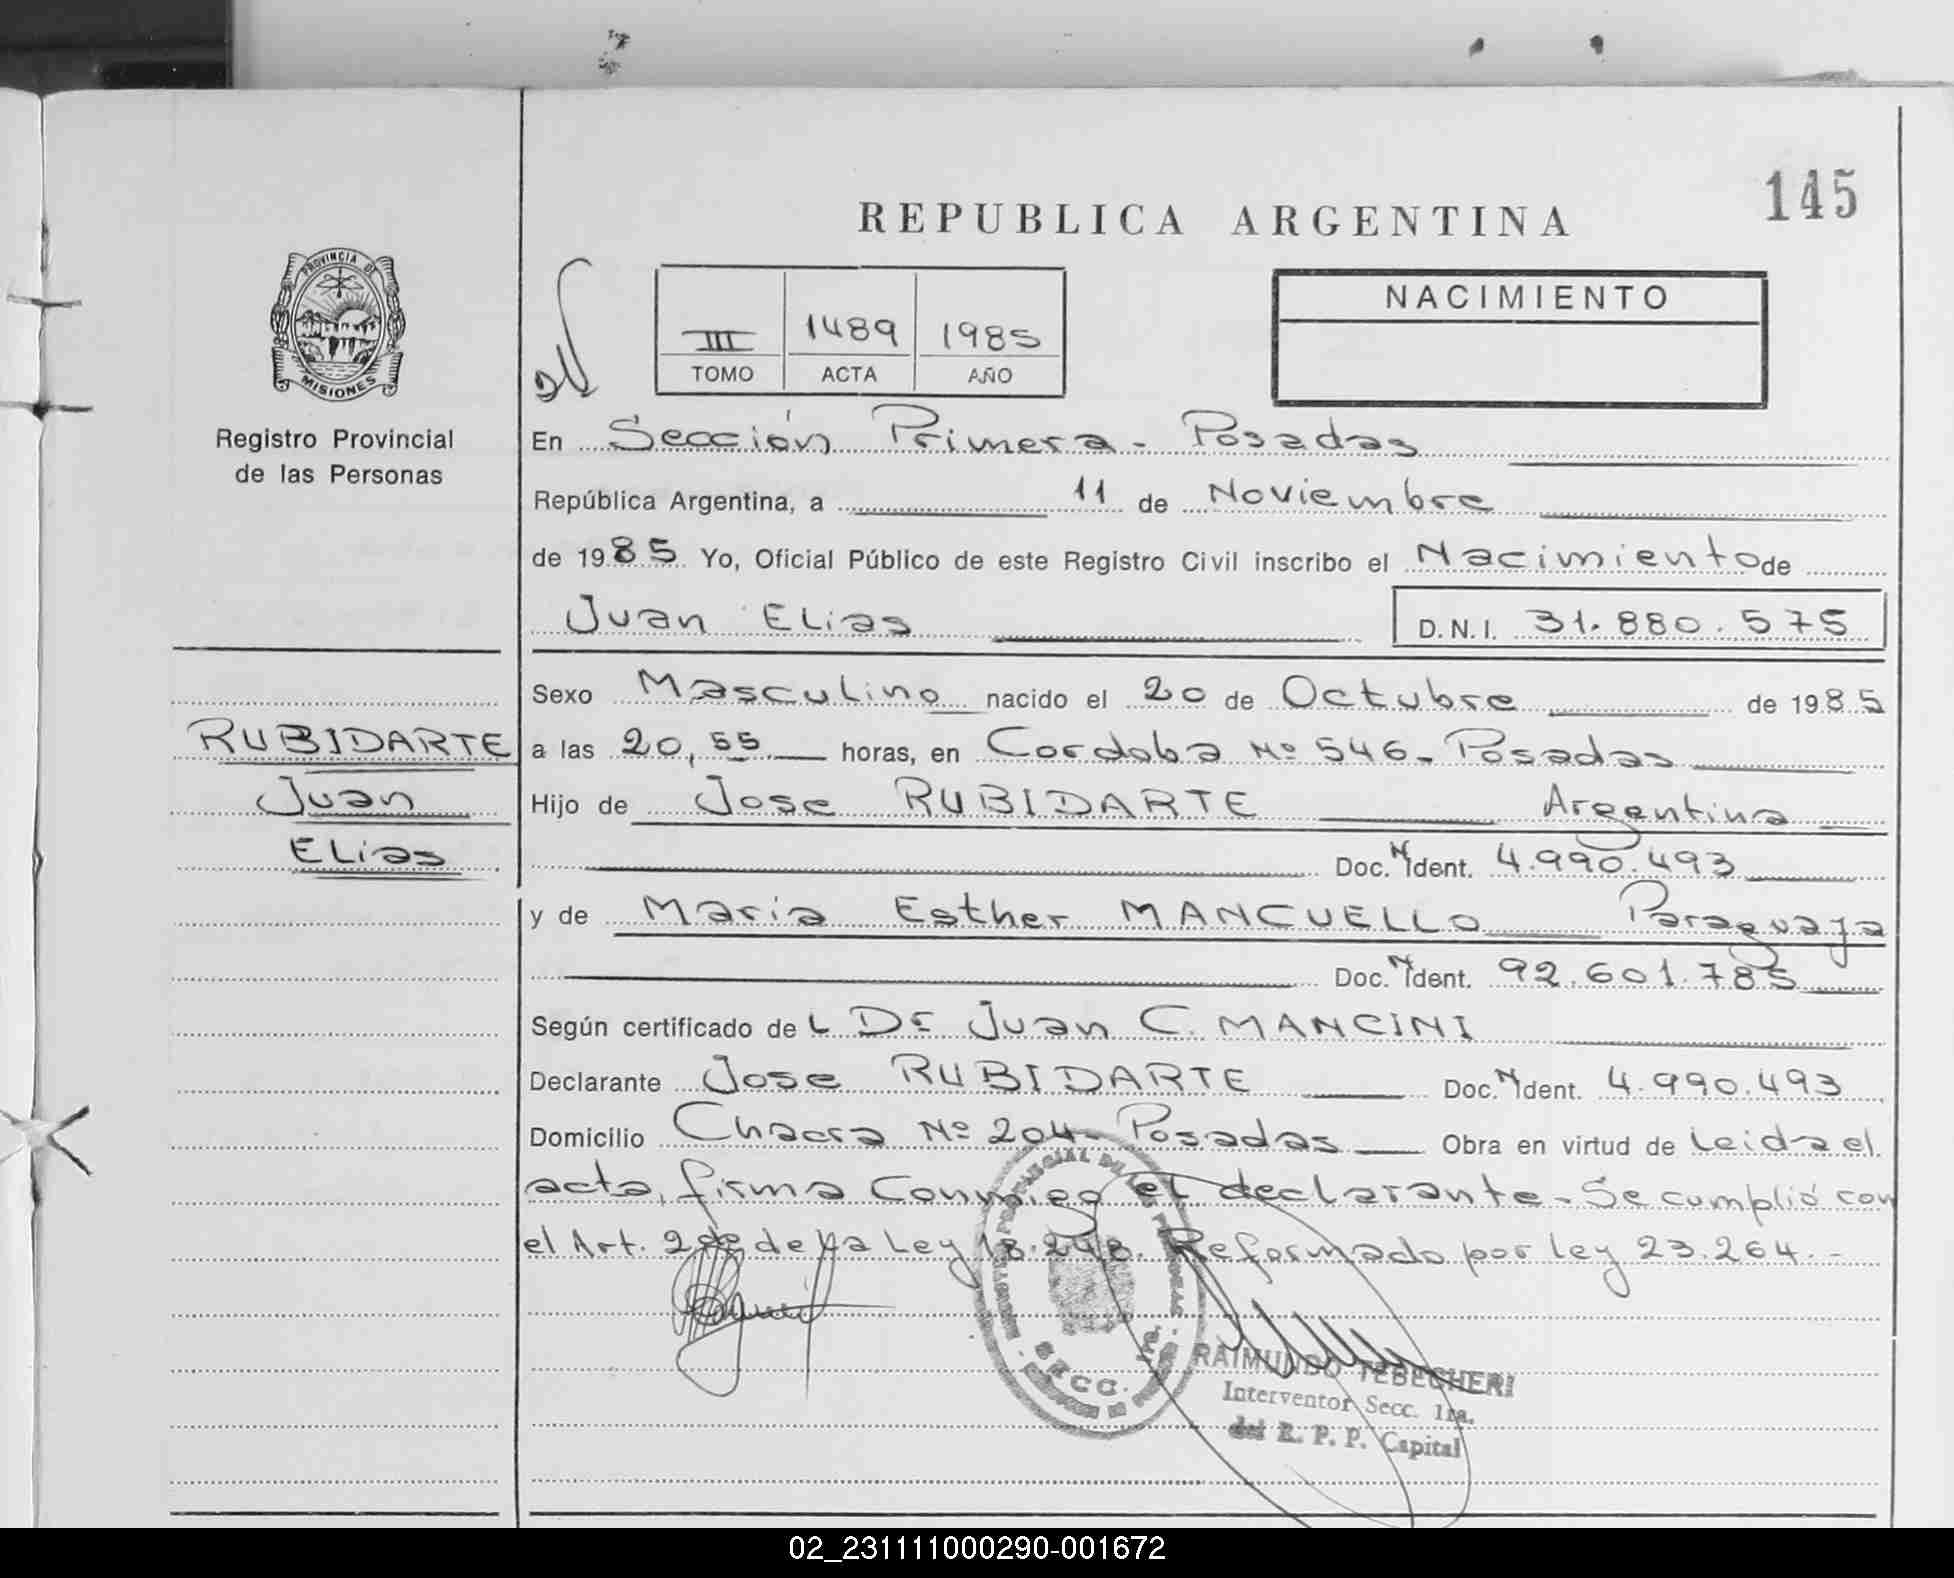 145
REPUBLICA ARGENTINA
PROVINCIA DE
MISIONES
Registro Provincial
de las Personas
III 1489 1985
TOMO ACTA AÑO
NACIMIENTO
En Sección Primera - Posadas
República Argentina, a 11 de Noviembre
de 1985 Yo, Oficial Público de este Registro Civil inscribo el Nacimiento de
Juan Elias D.N.I. 31.880.575
Sexo Masculino nacido el 20 de Octubre de 1985
RUBIDARTE
Juan
Elias
a las 20,55 horas, en Cordoba Nº 546 - Posadas
Hijo de Jose RUBIDARTE Argentina
Doc. N Ident. 4.990.493
y de Maria Esther MANCUELLO Paraguaya
Doc. N Ident. 92.601.785
Según certificado del Dr Juan C. MANCINI
Declarante Jose RUBIDARTE Doc. N Ident. 4.990.493
Domicilio Chacra Nº 204 - Posadas Obra en virtud de Leida el
acta, firma Conmigo el declarante - Se cumplió con
el Art. 2do de la Ley 18.248. Reformado por ley 23.264.-
SECC. 1ra.
RAIMUNDO TEBECHERI
Interventor Secc. 1ra.
del R. P. P. Capital
02_231111000290-001672